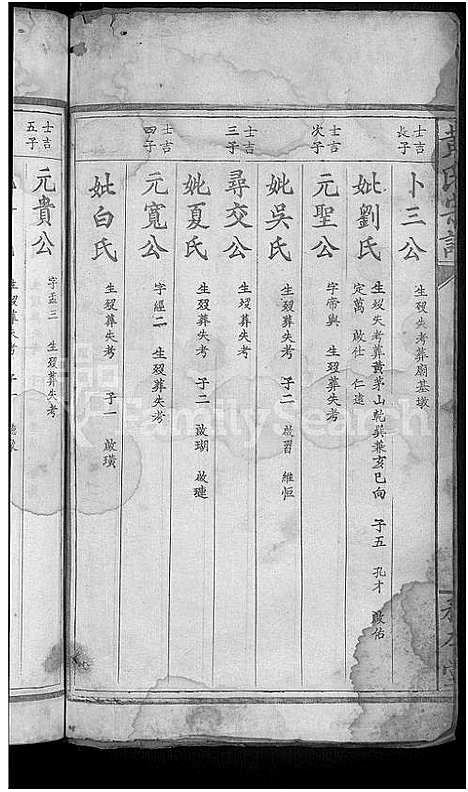 氏宗譜
士吉長子
卜三公 生歿失考葬廟基墩
妣劉氏 生歿失考葬黄茅山乾巽兼亥巳向 子五 孔才 啟佑
定萬 啟仕 仁遠
士吉次子
元聖公 字帝與 生歿葬失考
妣吳氏 生歿葬失考 子二 啟習 維恒
士吉三子
尋交公 生歿葬失考
妣夏氏 生歿葬失考 子二 啟瑚 啟璉
士吉四子
元寬公 字經二 生歿葬失考
妣白氏 生歿葬失考 子一 啟璜
士吉五子
元貴公 字盃三 生歿葬失考
生歿葬失考 子一
FamilySearch